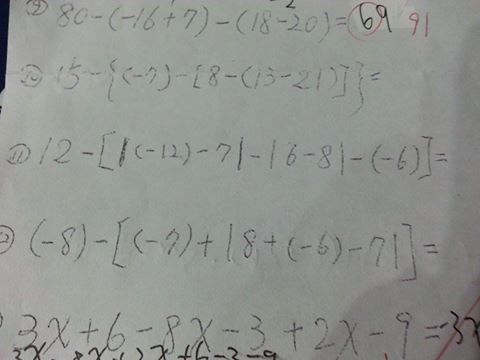 ⑨ 80-(-16+7)-(18-20)= 69 91
⑩ 15-{(-7)-[8-(13-21)]}=
⑪ 12-[|(-12)-7|-|6-8|-(-6)]=
(-8)-[(-7)+|8+(-6)-7|]=
3x+6-8x-3+2x-9=-3x
3x-8x+2x+6-3-9